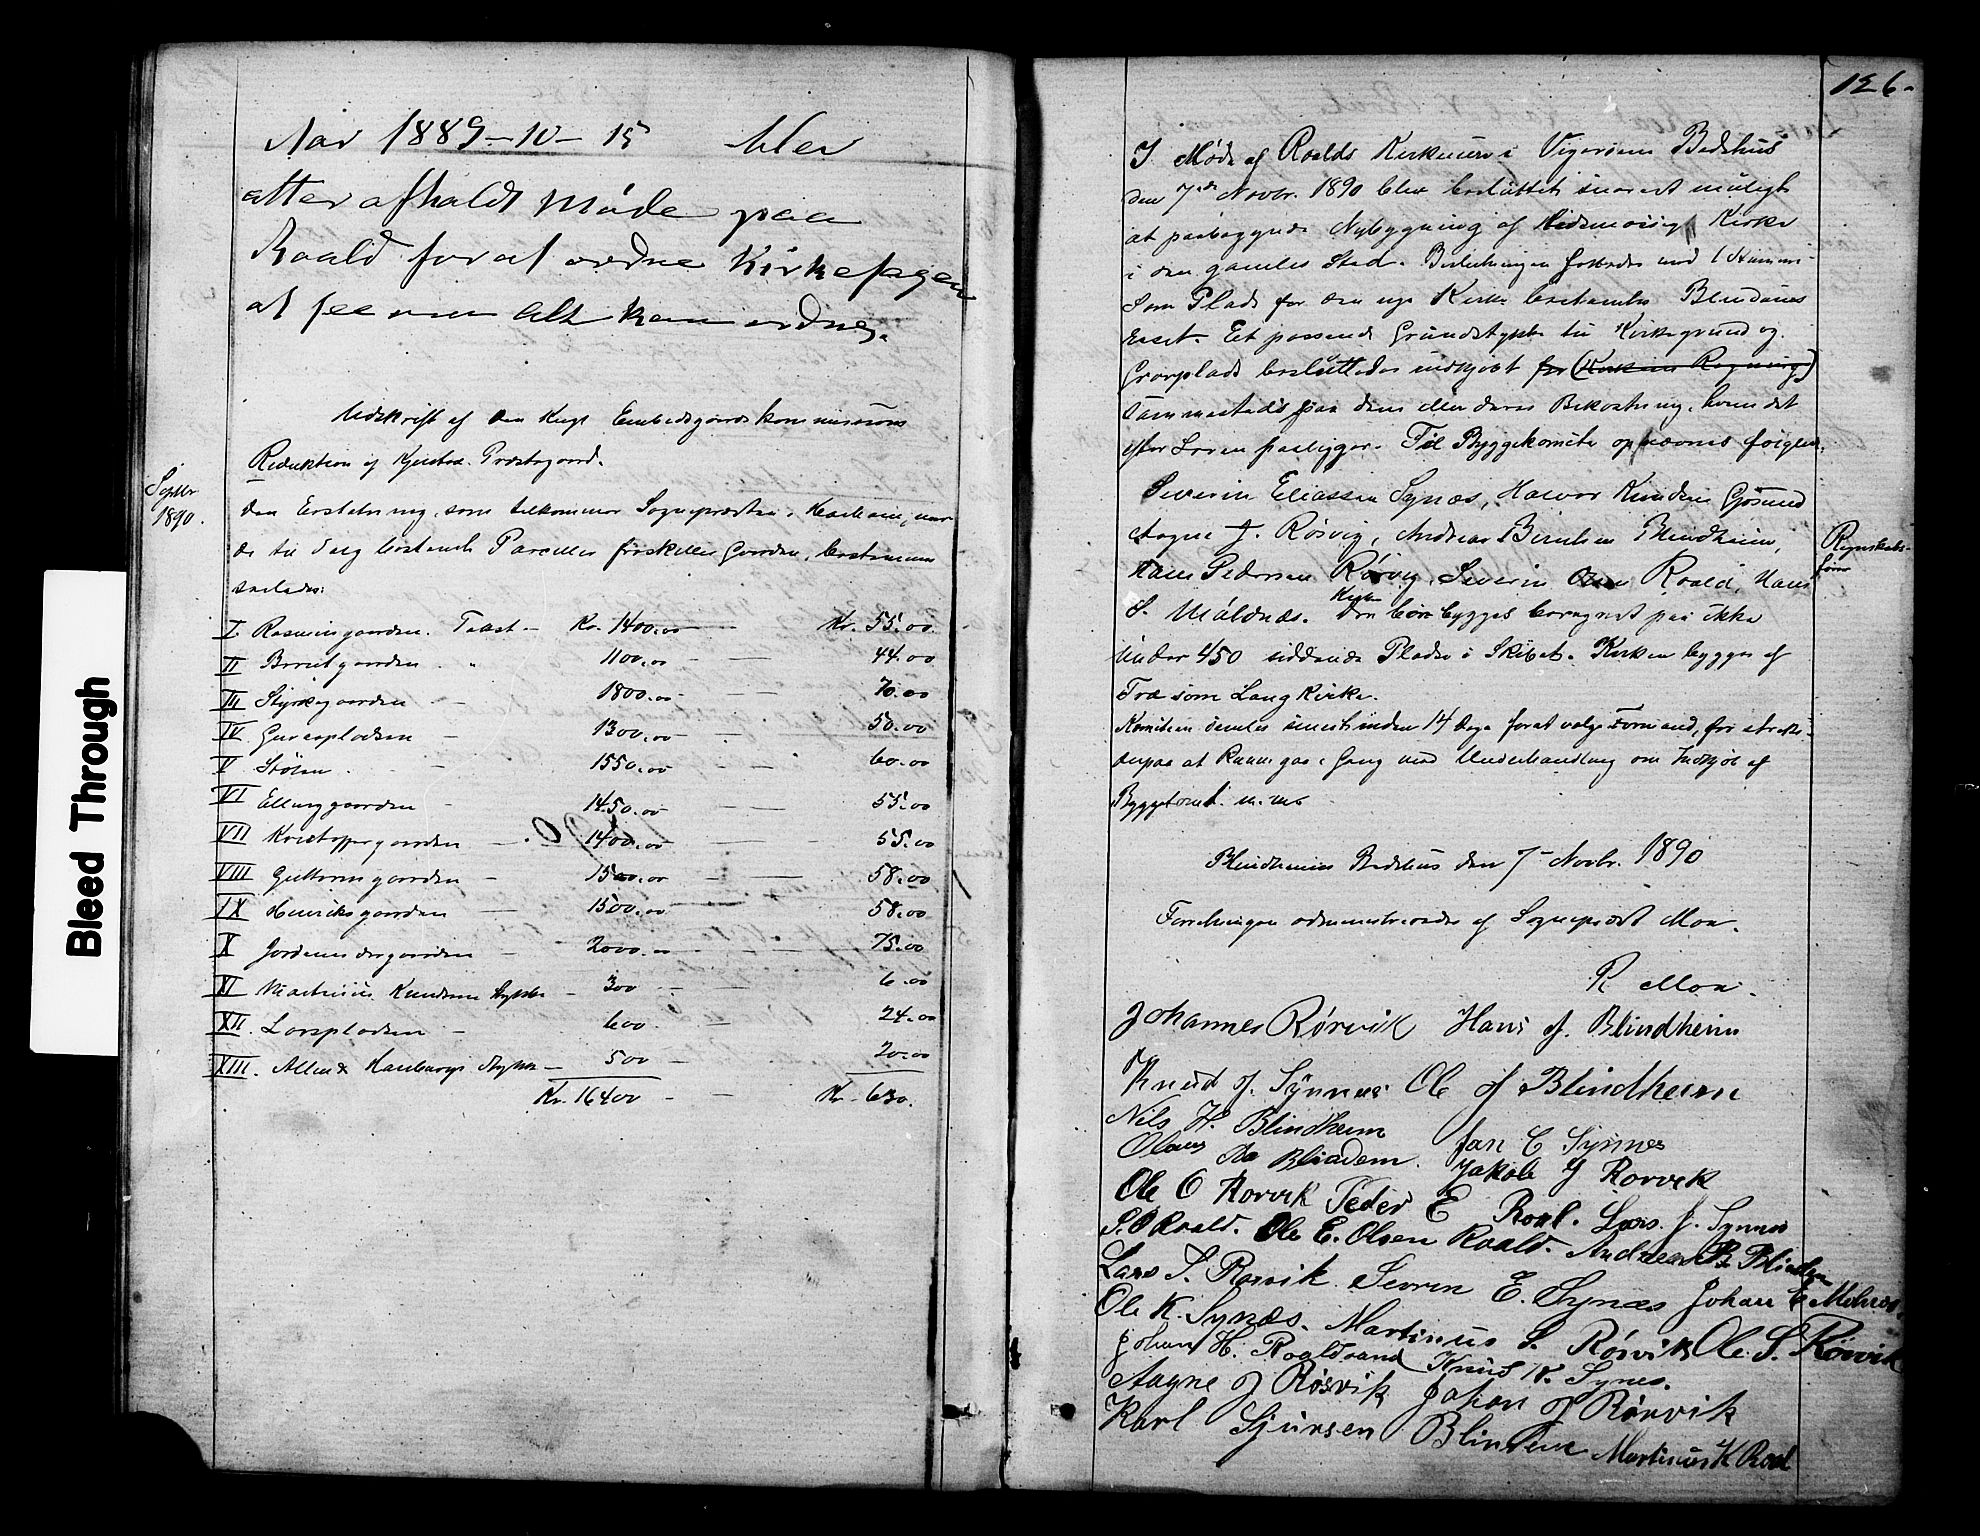 Bleed Through
Aar 1889-10-15 blev
atter afholdt Møde paa
Roald for at ordne Kirkesagen
at see om Alt kan ordnes.
Udskrift af den Kngl Embedsgaardskommissions
Reduktion af Præstegaard.
Septbr
1890.
den Erstatning, som tilkommer Sognepræsten i Haram, naar
de til Salg bestemte Parceller fraskilles Gaarden, bestemmes
saaledes:
I Rasmusgaarden. Taxt - Kr. 1400.00 - Kr. 55.00
II Berntgaarden " 1100.00 - 44.00
III Styrkegaarden - 1800.00 - 70.00
IV - 1300.00 - 50.00
V Stølen - 1550.00 - 60.00
VI Ellinggaarden - 1450.00 - 55.00
VII Kristoffergaarden - 1400.00 - 55.00
VIII Guttormgaarden - 1500.00 - 58.00
IX Henriksgaarden - 1500.00 - 58.00
X - 2000.00 - 75.00
XI Martinus Knudsens Stykke - 300 - 6.00
XII. Larspladsen - 600 - 24.00
XIII. Stykke - 500 - 20.00
Kr. 16400 - Kr. 630.
126.
I Møde af Roalds Kirkesogn i Vigerøens Bedehus
den 7de Novbr. 1890 blev besluttet snarest muligt
at paabegynde Nybygning af Kirke
i den gamles Sted. Beslutningen fattedes mod 1 Stemme
Som Plads for den nye Kirke bestemtes Blindenes
Et passende Grundstykke til Kirkegrund og
Gravplads besluttedes indkjøbt for (Kirkens Regning)
sammesteds paa dens eller deres Bekostning, hvem det
efter Loven paaligger. Til Byggekomite opnævnes følgende,
Severin Eliassen Synæs, Halvor Knudsen Gjøsund
Aagne J. Rørvig, Andreas Berntsen Blindheim,
Regnskabs-
fører
Hans Pedersen Rørvig, Severin Olsen Roald, Hans
S. Moldnæs. Kirken bør bygges beregnet paa ikke
under 450 siddende Pladse i Skibet. Kirken bygges af
Træ som Langkirke.
Komiteen samles senest inden 14 Dage forat vælge Formand, for straks
derpaa at kunne gaa i Gang med Underhandling om Indkjøb af
Byggetomt m. m.
Blindheims Bedehus den 7de Novbr. 1890
Forretningen administreredes af Sogneprest Moe.
R Moe.
Johannes Rørvik Hans J. Blindheim
Knud J. Synnes Ole J Blindheim
Nils H. Blindheim Jon C Synnes
Olaus Aa Blindem. Jakob J Rørvik
Ole O Rorvik Peder E Roal. Lars. J. Synnes
S. O Roald. Ole E. Olsen Roald. Andreas B Blindem
Lars S. Rørvik Sevrin E. Synæs Johan E Molnes
Ole K. Synæs. Martinus S. Rørvik Ole. S. Rørvik
Johan H. Roaldsand Knud K. Synes.
Aagne J Rørvik Johan J Rørvik
Karl Sjursen Blindem Martinus K Roal